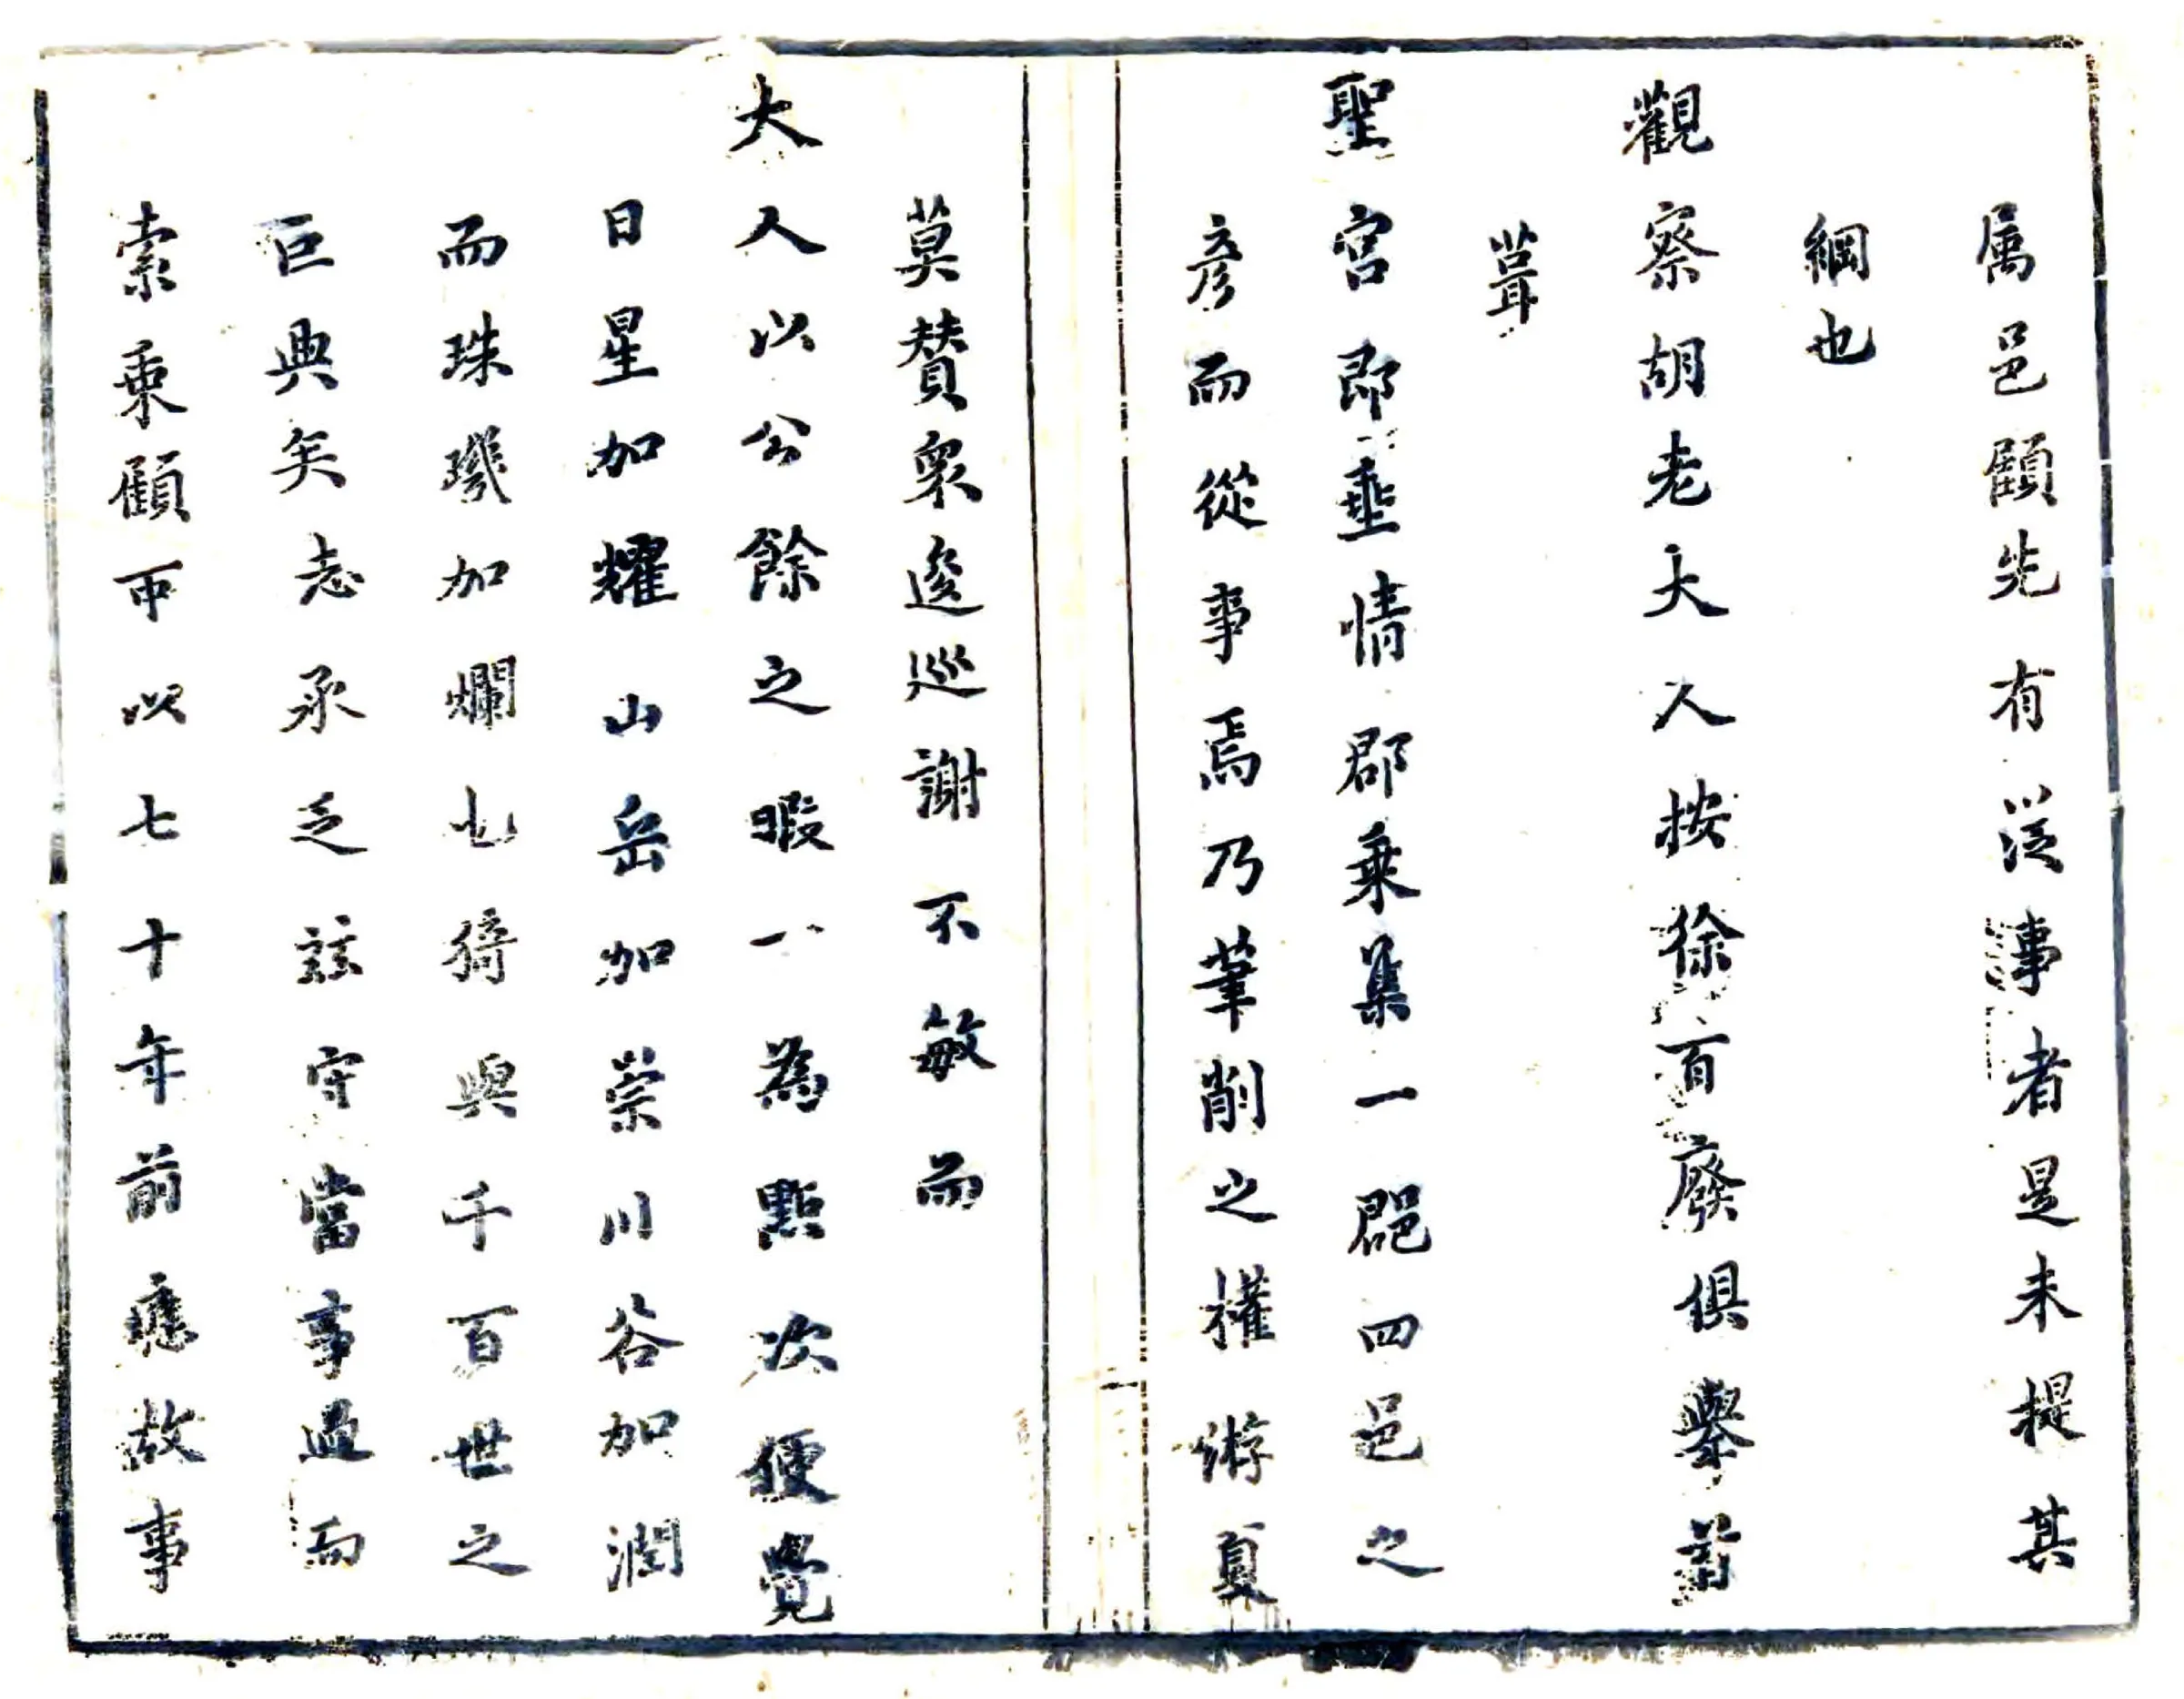 属邑顧先有從事者是未提其
綱也
觀察胡老大人按徐百廢俱舉葺
葺
聖宮即垂情郡乗集一郡四邑之
彦而從事焉乃筆削之權游夏
莫賛衆逡巡謝不敏而
大人以公餘之暇一為點次便覺
日星加耀山岳加崇川谷加潤
而珠璣加爛也猗與千百世之
巨典矣志承乏該守當事過而
索乗顧可以七十年前應故事